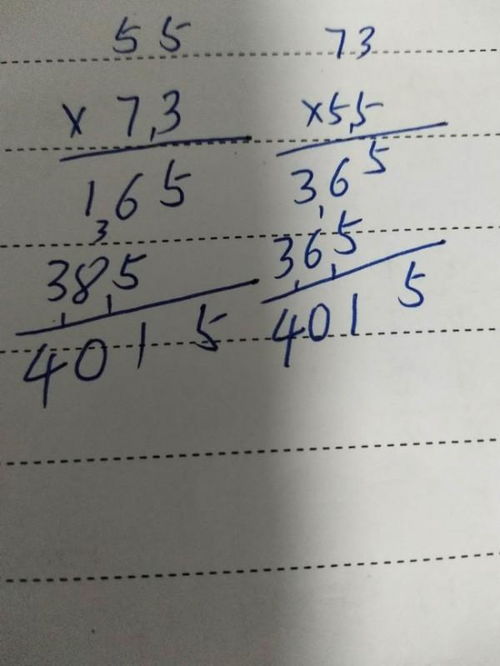 55 73
× 73 × 55
165 365
385 365
4015 4015